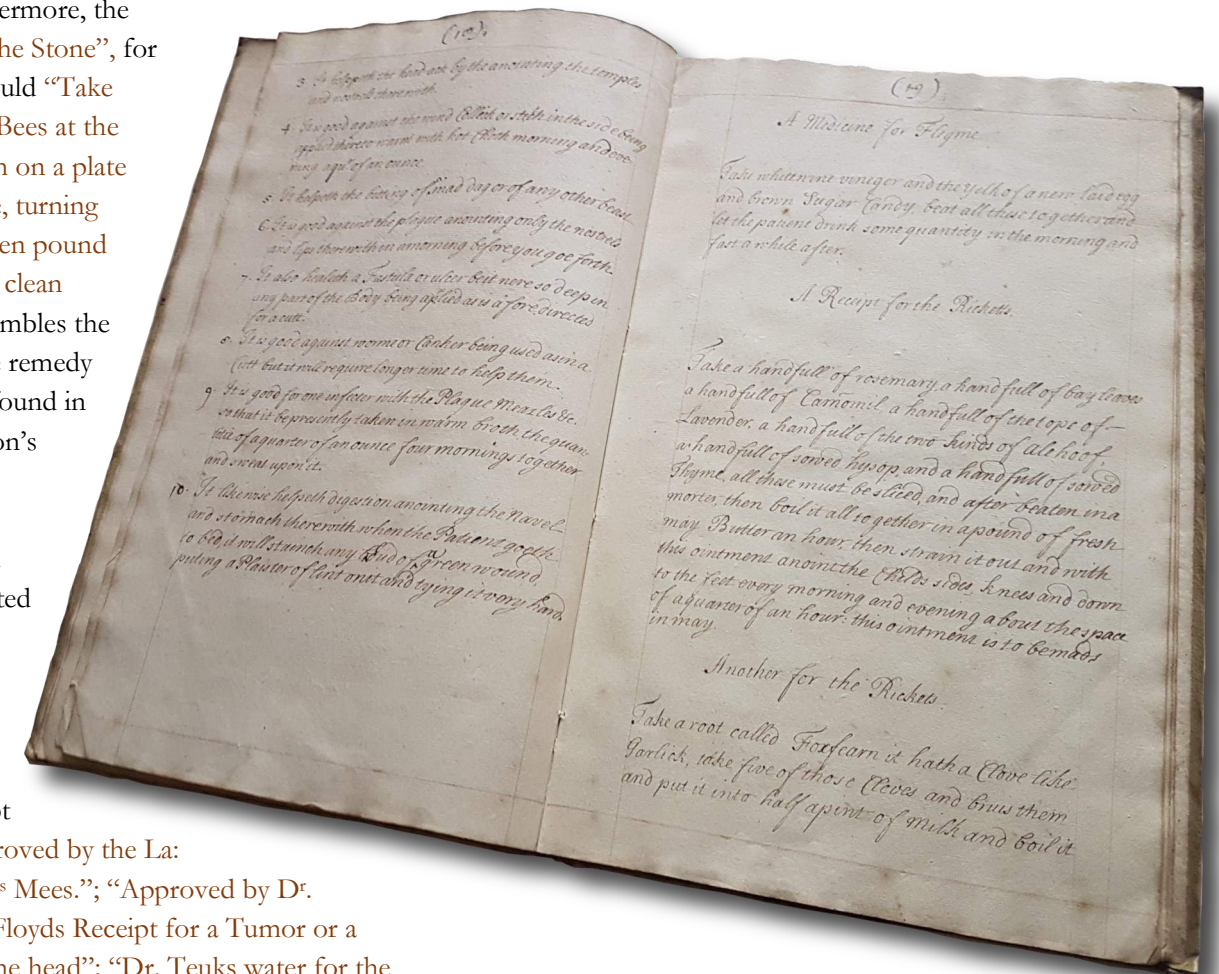 ermore, the
he Stone”, for
uld “Take
Bees at the
n on a plate
, turning
en pound
clean
mbles the
remedy
ound in
on’s
ted
ot
roved by the La:
ˢ Mees.”; “Approved by Dʳ.
Floyds Receipt for a Tumor or a
he head”; “Dr. Teuks water for the
3 It helpeth the head-ach by the anointing the temples
and nostrels therewith.
4. It is good against the wind Collick or stitch in the side being
applied thereto warm with hot Cloth morning and eve-
ning a qur. of an ounce.
5 It helpeth the bitting of mad dog or of any other beast
6. It is good against the plague anointing only the nostrels
and lips therewith in a morning before you goe forth
7. It also healeth a Fustula or ulcer be it nere so deep in
any part of the Body being aplied as is a fore directed
for a cutt.
8. It is good against worme or Canker being used as in a
Cutt but it will require longer time to help them.
9. It is good for one infecter with the Plague Measles &c.
so that it be presently taken in warm broth, the quan-
titie of a quarter of an ounce four mornings together
and sweat upon it.
10. It likewise helpeth digestion anointing the Navel
and stomach therewith when the Patient goeth
to bed, it will staench any blud of a green wound,
puting a Plaister of lint on it and tying it very hard.
(19)
A Medicine for Fligme
Take whitewine veneger and the yelk of a new laid egg
and brown Sugar Candy, beat all these together and
let the patient drink some quantity in the morning and
fast a while after.
A Receipt for the Ricketts.
Take a handfull of rosemary, a handfull of bay leaves
a handfull of Camomil, a handfull of the tops of –
Lavender, a handfull of the two kinds of alehoof,
a handfull of sowed hysop, and a handfull of sowed
Thyme, all these must be sliced, and after beaten in a
morter, then boil it all together in a pound of fresh
may Butter an hour, then strain it out and with
this ointment anoint the Childs sides, knees and down
to the feet every morning and evening about the space
of a quarter of an hour: this ointment is to be made
in may.
Another for the Rickets.
Take a root called Foxfearn it hath a Clove like
Garlick, take five of those Cleves and bruis them
and put it into half a pint of milk and boil it